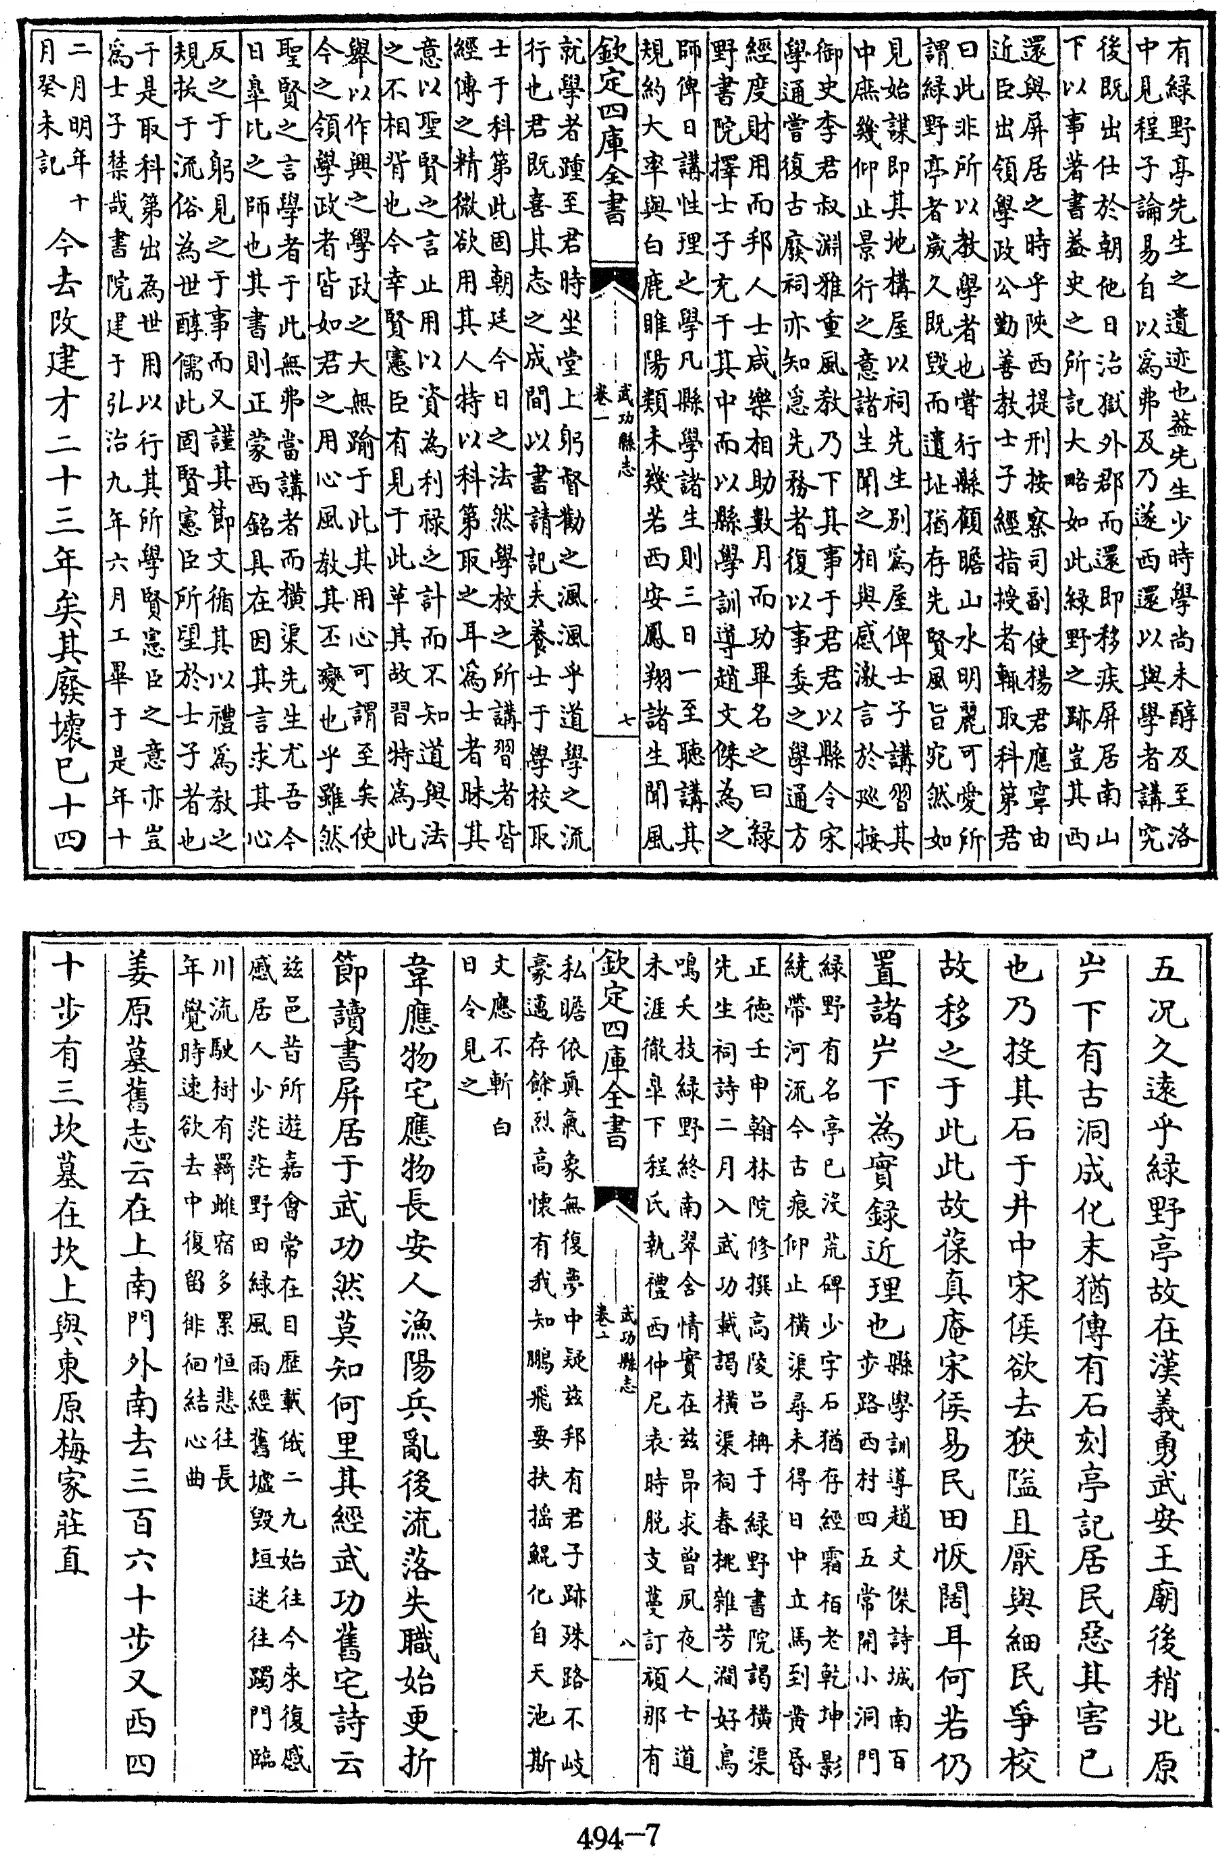 有緑野亭先生之遺迹也葢先生少時學尚未醇及至洛
中見程子論易自以為弗及乃遂西還以與學者講究
後既出仕於朝他日治獄外郡而還即移疾屏居南山
下以事著書葢史之所記大略如此緑野之跡豈其西
還與屏居之時乎陜西提刑按察司副使楊君應寧由
近臣出領學政公勤善教士子經指授者輒取科第君
曰此非所以教學者也嘗行縣顧瞻山水明麗可愛所
謂緑野亭者歲久既毁而遺址猶存先賢風旨宛然如
見始謀即其地構屋以祠先生别為屋俾士子講習其
中庶幾仰止景行之意諸生聞之相與感激言於廵按
御史李君叔淵雅重風教乃下其事于君君以縣令宋
學通嘗復古廢祠亦知急先務者復以事委之學通方
經度財用而邦人士咸樂相助數月而功畢名之曰緑
野書院擇士子充于其中而以縣學訓導趙文傑為之
師俾日講性理之學凡縣學諸生則三日一至聽講其
規約大率與白鹿睢陽類未幾若西安鳳翔諸生聞風
欽定四庫全書
武功縣志
卷一
七
就學者踵至君時坐堂上躬督勸之渢渢乎道學之流
行也君既喜其志之成間以書請記夫養士于學校取
士于科第此固朝廷今日之法然學校之所講習者皆
經傳之精微欲用其人特以科第取之耳為士者昧其
意以聖賢之言止用以資為利禄之計而不知道與法
之不相背也今幸賢憲臣有見于此革其故習特為此
舉以作興之學政之大無踰于此其用心可謂至矣使
今之領學政者皆如君之用心風教其丕變也乎雖然
聖賢之言學者于此無弗當講者而横渠先生尤吾今
日臯比之師也其書則正蒙西銘具在因其言求其心
反之于躬見之于事而又謹其節文循其以禮為教之
規拔于流俗為世醇儒此固賢憲臣所望於士子者也
于是取科第出為世用以行其所學賢憲臣之意亦豈
為士子禁哉書院建于弘治九年六月工畢于是年十
二月明年十
月癸未記
今去改建才二十三年矣其廢壞已十四
五况久逺乎緑野亭故在漢義勇武安王廟後稍北原
岸下有古洞成化末猶傳有石刻亭記居民惡其害已
也乃投其石于井中宋侯欲去狹隘且厭與細民爭校
故移之于此此故葆真庵宋侯易民田恢闊耳何若仍
置諸岸下為實録近理也
縣學訓導趙文傑詩城南百
步路西村四五常開小洞門
緑野有名亭已没荒碑少字石猶存經霜栢老乾坤影
繞帶河流今古痕仰止横渠尋未得日中立馬到黄昏
正德壬申翰林院修撰高陵吕柟于緑野書院謁横渠
先生祠詩二月入武功載謁横渠祠春桃雜芳澗好鳥
鳴夭枝緑野終南翠含情實在兹昂求曾夙夜人七道
未涯徹臯下程氏執禮西仲尼表時脱支蔓訂頑那有
欽定四庫全書
武功縣志
卷二
八
私瞻依真氣象無復夢中疑兹邦有君子跡殊路不岐
豪邁存餘烈高懷有我知鵬飛要扶摇鯤化自天池斯
文應不斬白
日今見之
韋應物宅應物長安人漁陽兵亂後流落失職始更折
節讀書屏居于武功然莫知何里其經武功舊宅詩云
兹邑昔所遊嘉會常在目歴載俄二九始往今來復感
感居人少茫茫野田緑風雨經舊墟毁垣迷往躅門臨
川流駛樹有羇雌宿多累恒悲往長
年覺時速欲去中復留徘徊結心曲
姜原墓舊志云在上南門外南去三百六十步又西四
十步有三坎墓在坎上與東原梅家莊直
494-7